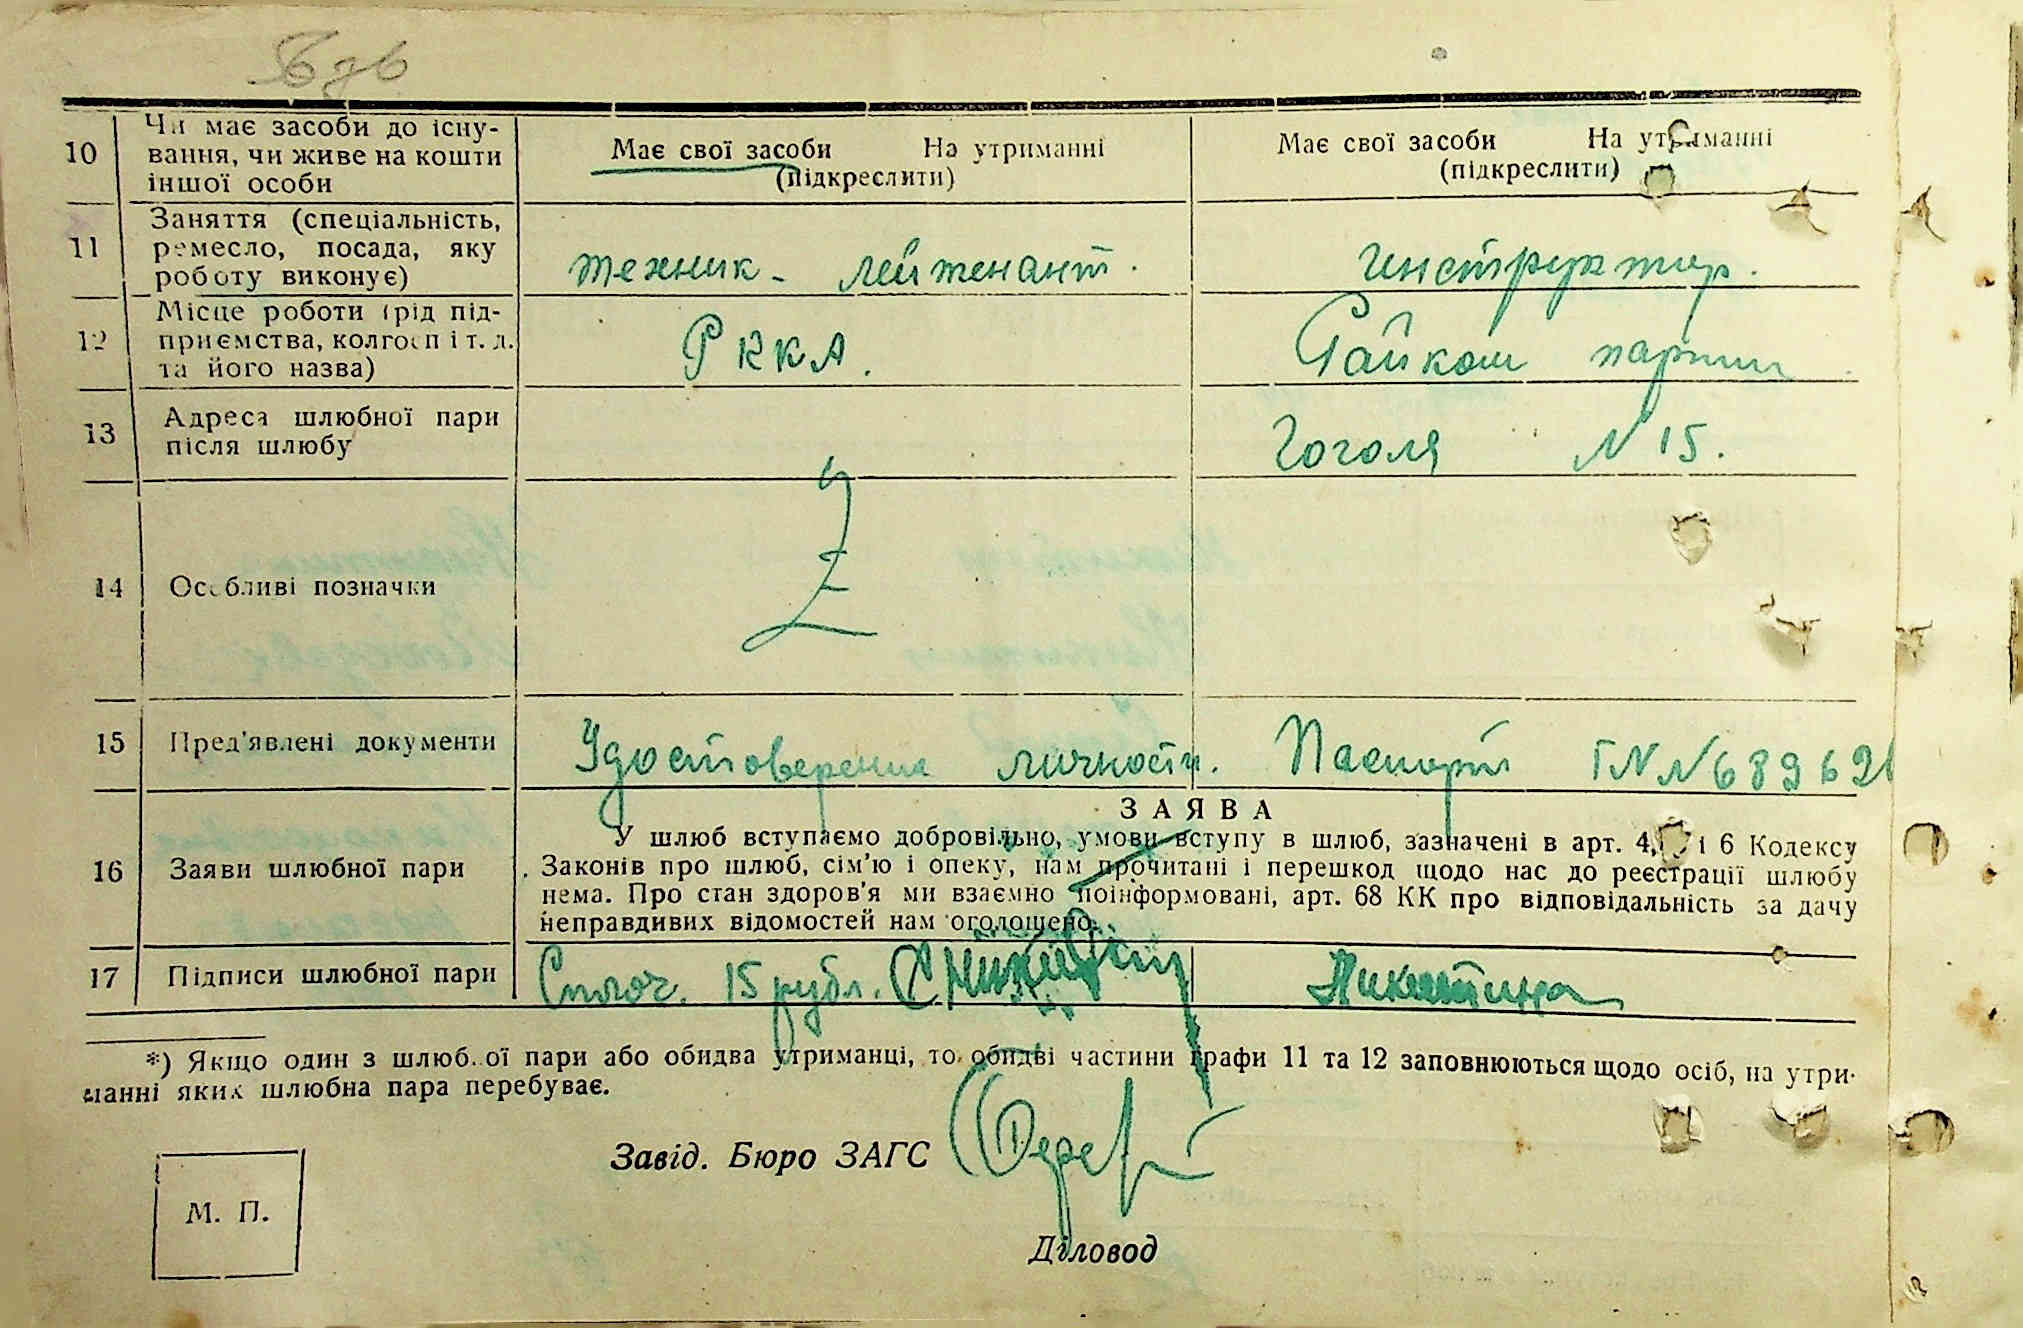 10 Чи має засоби до існу-
вання, чи живе на кошти
іншої особи
Має свої засоби На утриманні
(підкреслити)
Має свої засоби На утриманні
(підкреслити)
11 Заняття (спеціальність,
ремесло, посада, яку
роботу виконує)
техник - лейтенант.
инструктор.
12 Місце роботи (рід під-
приємства, колгосп і т. д.
та його назва)
РККА.
Райком партии
13 Адреса шлюбної пари
після шлюбу
Гоголя N 15.
14 Особливі позначки
15 Пред'явлені документи
Удостоверение личности.
Паспорт ГN N 689621
16 Заяви шлюбної пари
ЗАЯВА
У шлюб вступаємо добровільно, умови вступу в шлюб, зазначені в арт. 4, і 6 Кодексу
Законів про шлюб, сім'ю і опеку, нам прочитані і перешкод щодо нас до реєстрації шлюбу
нема. Про стан здоров'я ми взаємно поінформовані, арт. 68 КК про відповідальність за дачу
неправдивих відомостей нам оголошено.
17 Підписи шлюбної пари
Сплоч. 15 рубл.
Никитина
*) Якщо один з шлюбної пари або обидва утриманці, то обидві частини графи 11 та 12 заповнюються щодо осіб, на утри-
манні яких шлюбна пара перебуває.
Завід. Бюро ЗАГС
М. П.
Діловод